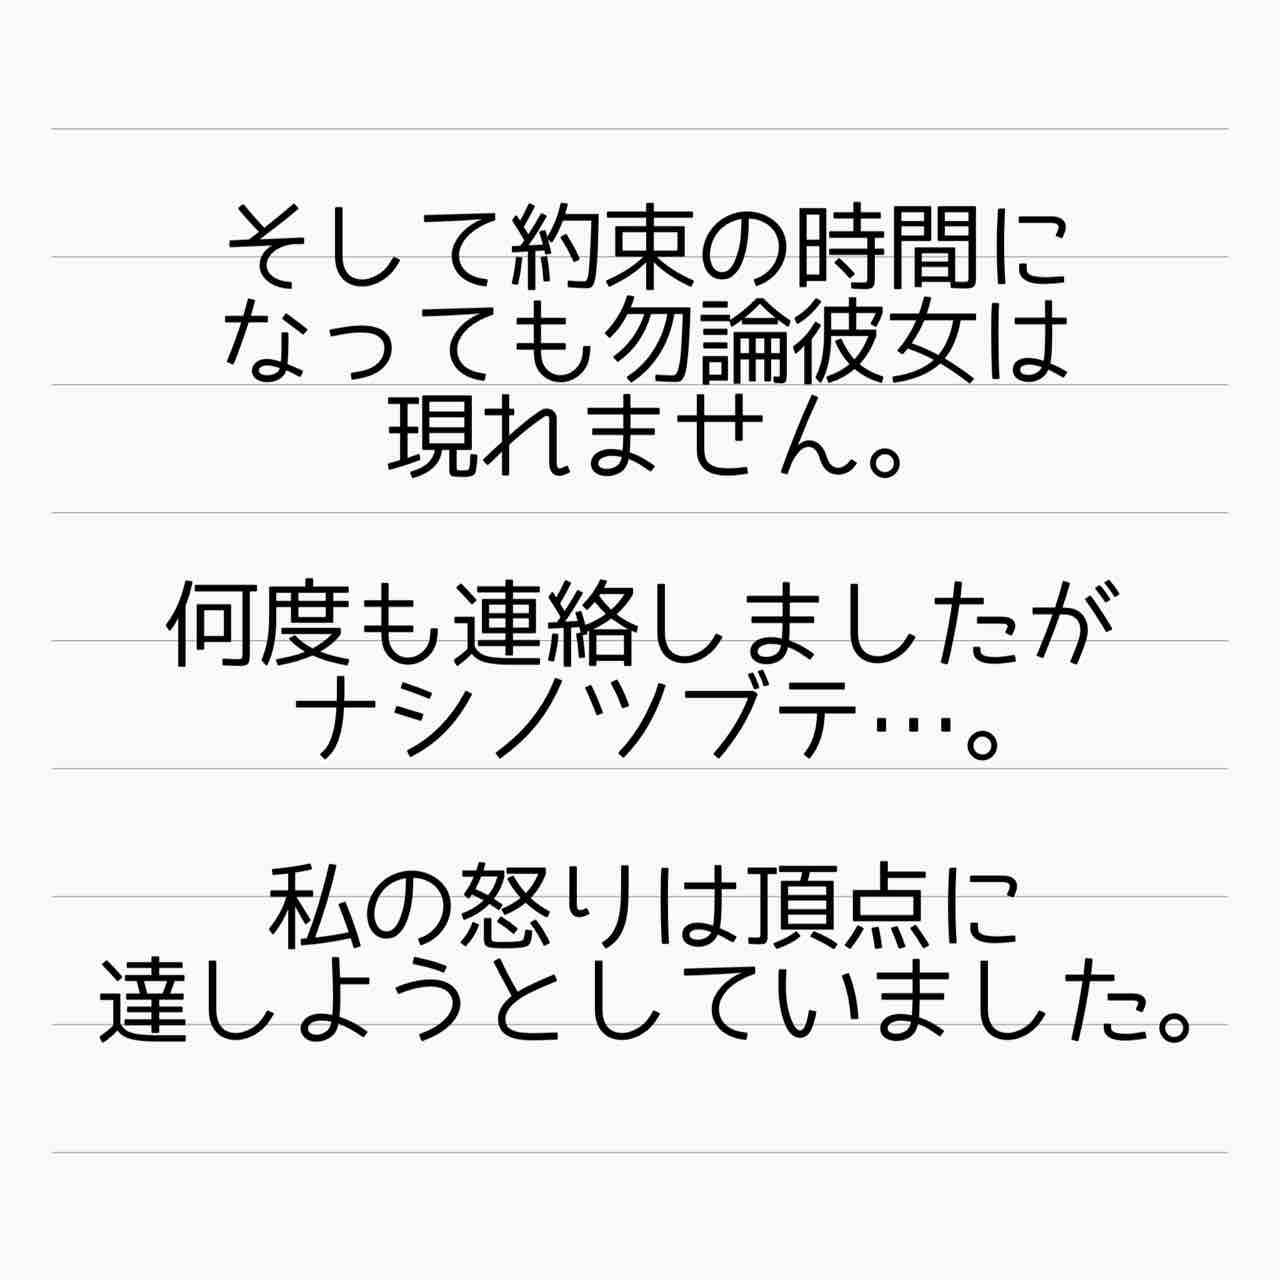 そして約束の時間に
なっても勿論彼女は
現れません。
何度も連絡しましたが
ナシノツブテ…。
私の怒りは頂点に
達しようとしていました。